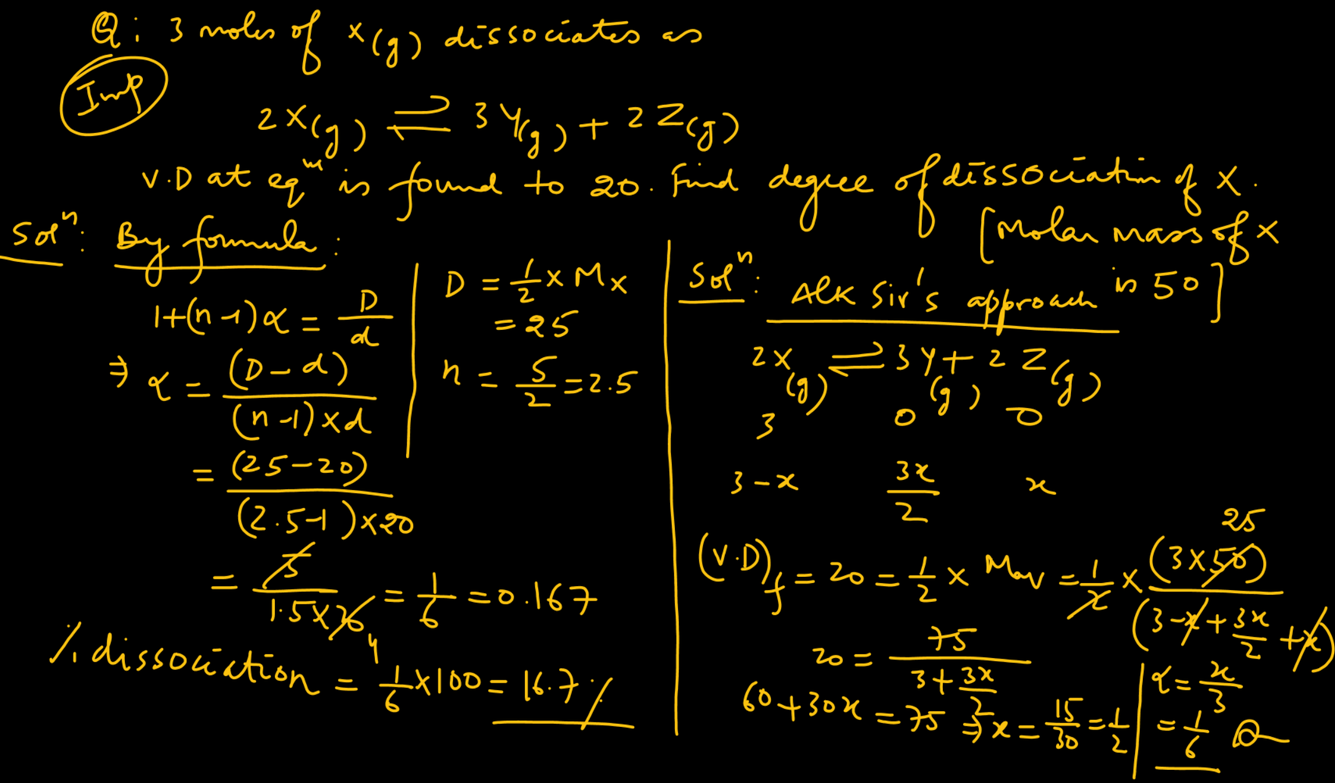 Q: 3 moles of x(g) dissociates as
Imp
2X(g) ⇌ 3Y(g) + 2Z(g)
V.D at eqᵐ is found to 20. Find degree of dissociation of X.
[Molar mass of X
is 50]
Solⁿ: By formula:
1+(n-1)α = D/d
⇒ α = (D-d)/((n-1)×d)
= (25-20)/((2.5-1)×20)
= 5/(1.5×20) 4 = 1/6 = 0.167
% dissociation = 1/6 × 100 = 16.7%
D = 1/2 × Mx
= 25
n = 5/2 = 2.5
Solⁿ: ALK Sir's approach
2X(g) ⇌ 3Y(g) + 2Z(g)
3 0 0
3-x 3x/2 x
(V.D)f = 20 = 1/2 × Mav = 1/2 × (3×50) 25/(3-x+3x/2+x)
20 = 75/(3+3x/2)
60+30x = 75 ⇒ x = 15/30 = 1/2
α = x/3
= 1/6